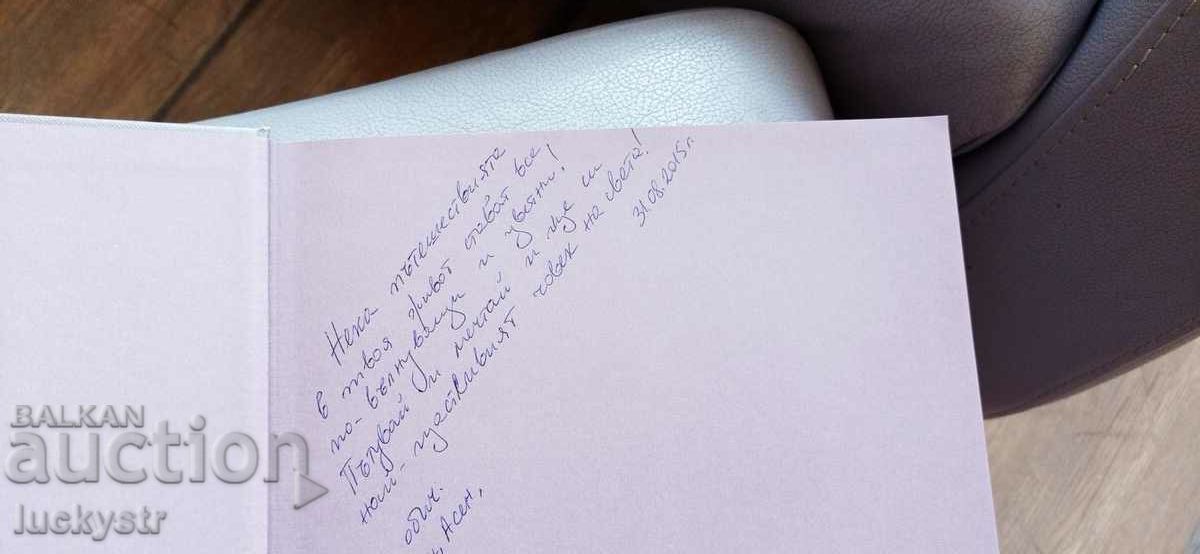 Нека пътешествията
в твоя живот стават все
по-вълнуващи и
Пътувай и мечтай и ще си
най-щастливият човек на света!
31.08.2015г.
обич.
Асен,
BALKAN
auction
luckystr